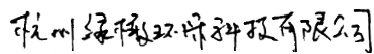 杭州绿橡环保科技有限公司